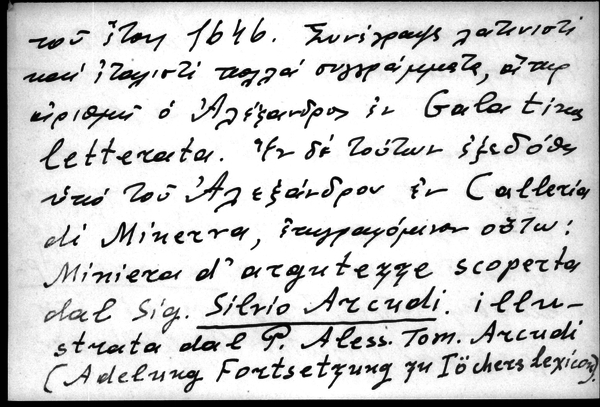 τοῦ ἔτους 1646. Συνέγραψε λατινιστί
καί ἰταλιστί πολλά συγγράμματα, ἅπερ
ἀριθμεῖ ὁ Ἀλέξανδρος ἐν Galatina
letterata. Ἓν δέ τούτων ἐξεδόθη
ὑπό τοῦ Ἀλεξάνδρου ἐν Calleria
di Minerva, ἐπιγραφόμενον οὕτω:
Miniera d'argutezze scoperta
dal Sig. Silvio Arcudi. illu-
strata dal P. Aless. Tom. Arcudi
(Adelung Fortsetzung zu Iöchers Lexicon).